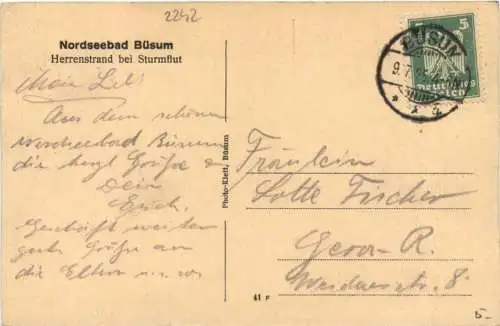 2242
Nordseebad Büsum
Herrenstrand bei Sturmflut
Mein Lieb!
Aus dem schönen
Nordseebad Büsum
die herzl Grüße &
Dein
Erich.
Geschäft weiter
gut. Grüße an
die Eltern u.
Photo-Klett, Büsum
41 F
5
BÜSUM
9.7.
Deutsches Reich
Fräulein
Lotte Fischer
Gera-R.
8
5-